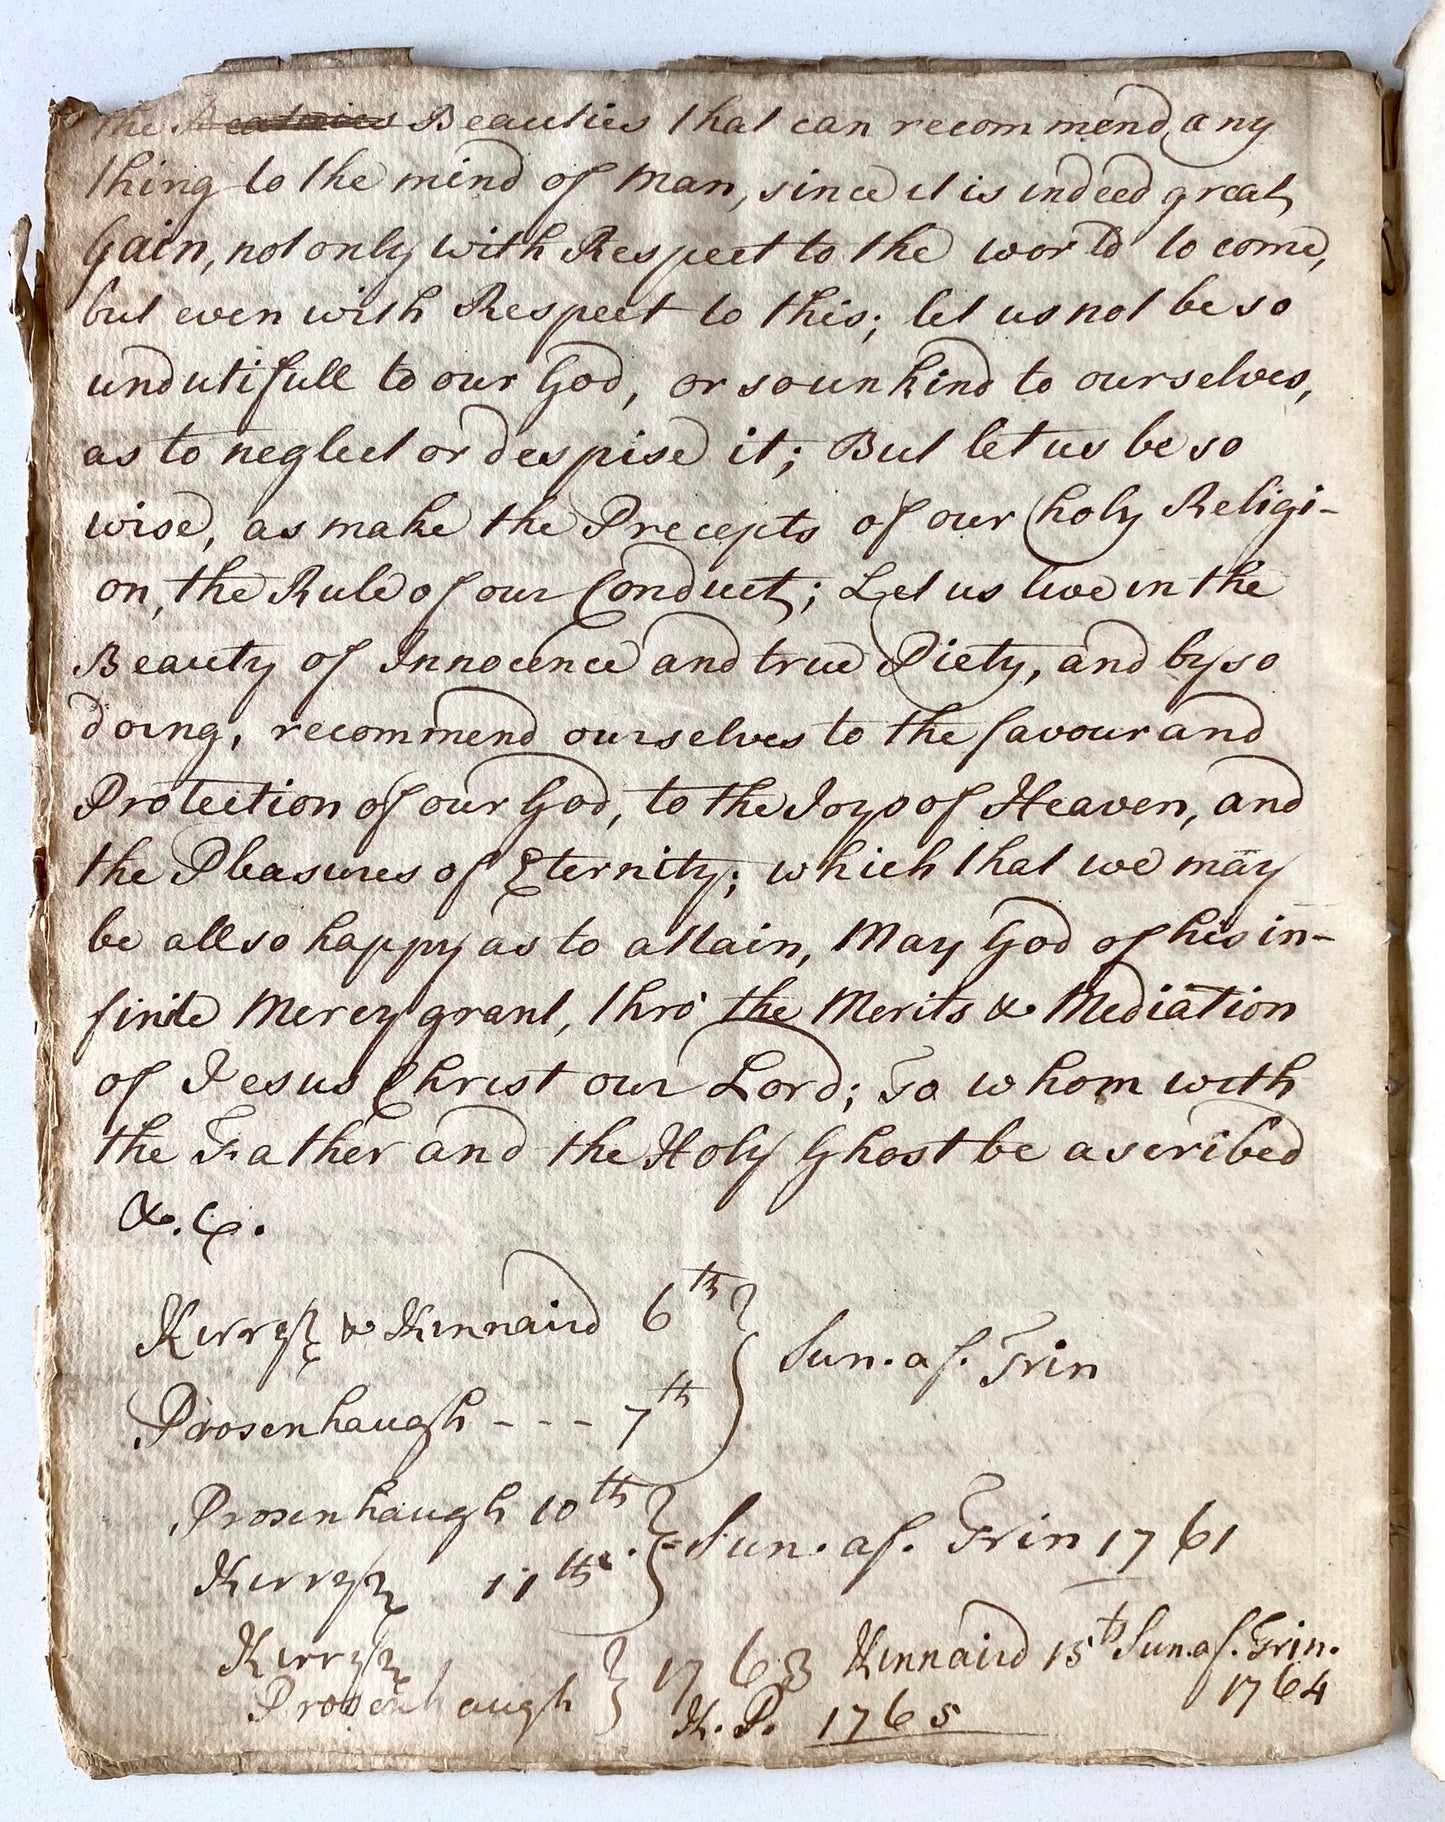 the Beauties that can recommend any
thing to the mind of Man, since it is indeed great
Gain, not only with Respect to the world to come,
but even with Respect to this; let us not be so
undutifull to our God, or so unkind to ourselves,
as to neglect or despise it; But let us be so
wise, as make the Precepts of our holy Religi-
on, the Rule of our Conduct; Let us live in the
Beauty of Innocence and true Piety, and by so
doing, recommend ourselves to the favour and
Protection of our God, to the Joys of Heaven, and
the Pleasures of Eternity; which that we may
be all so happy as to attain, May God of his in-
finite Mercy grant, thro' the Merits & Mediation
of Jesus Christ our Lord; To whom with
the Father and the Holy Ghost be ascribed
&.c.
& Kinnaird 6th } Sun. af. Trin
Prosenhaugh - - - 7th
Prosenhaugh 10th } Sun. af. Trin 1761
11th
1763 Kinnaird 15th Sun. af. Trin.
Prosenhaugh 1764
K. P. 1765